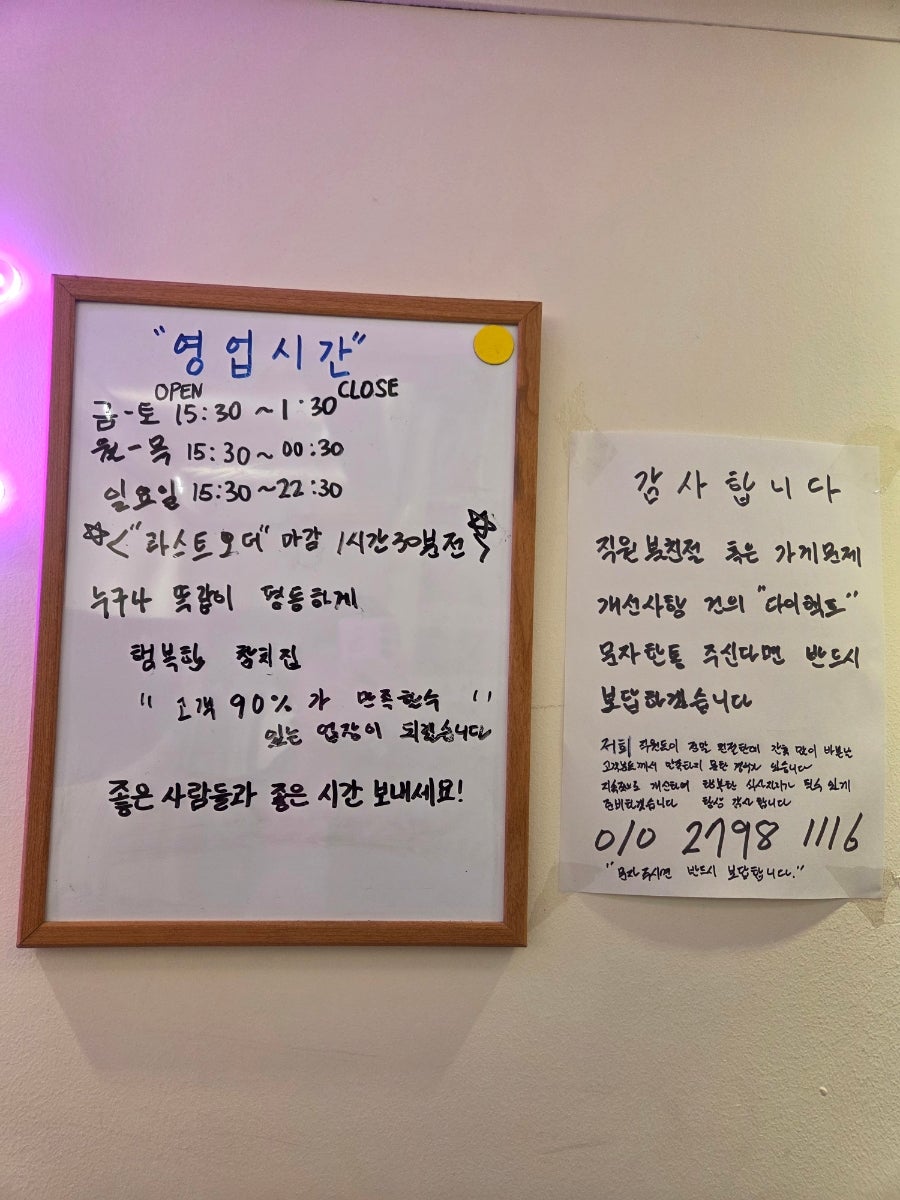 "영업시간"
OPEN CLOSE
금-토 15:30 ~ 1:30
월-목 15:30 ~ 00:30
일요일 15:30 ~ 22:30
☆<"라스트오더" 마감 1시간30분전>☆
누구나 똑같이 평등하게
행복한 참치집
"고객 90%가 만족할수
있는 업장이 되겠습니다"
좋은 사람들과 좋은 시간 보내세요!
감사합니다
직원 불친절 혹은 가게문제
개선사항 건의 "다이렉트"
문자한통 주신다면 반드시
보답하겠습니다
저희 직원들이 정말 친절한데 간혹 많이 바쁜날
고객분들께서 만족하지 못한 경우가 있습니다
개선하여 행복한 식사자리가 될수 있게
준비하겠습니다 항상 감사합니다
010 2798 1116
"문자주시면 반드시 보답합니다."